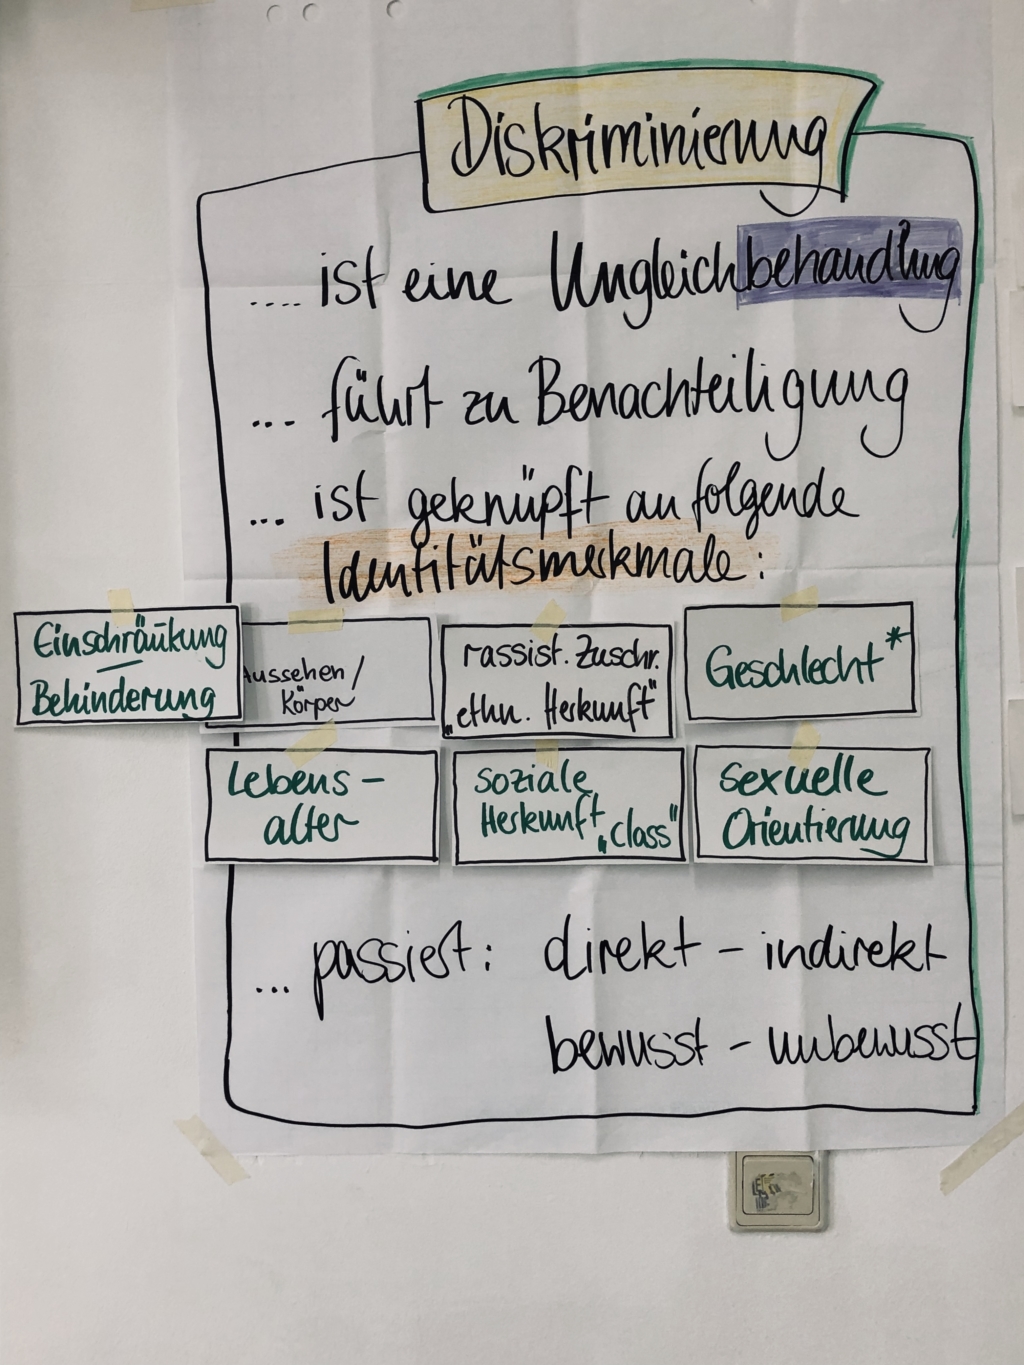 Diskriminierung
.... ist eine Ungleichbehandlung
... führt zu Benachteiligung
... ist geknüpft an folgende
Identitätsmerkmale:
Einschränkung
Behinderung
Aussehen/
Körper
rassist. Zuschr.
„ethn. Herkunft"
Geschlecht*
Lebens-
alter
soziale
Herkunft „class"
sexuelle
Orientierung
... passiert: direkt - indirekt
bewusst - unbewusst